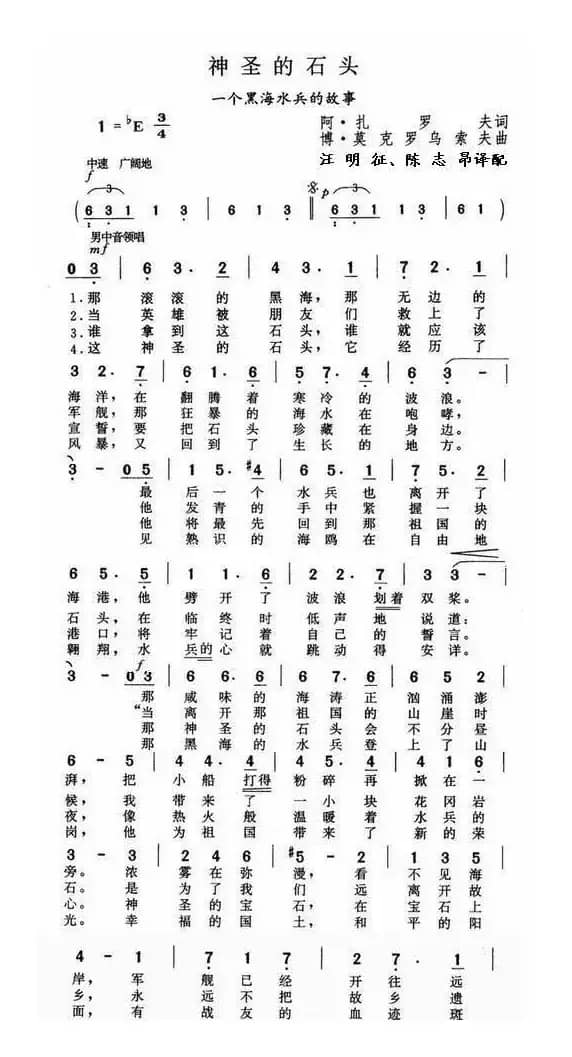 神圣的石头
一个黑海水兵的故事
1 = ♭E 3/4
阿·扎罗夫词
博·莫克罗乌索夫曲
汪明征、陈志昂译配
中速 广阔地
f
( 6 3 1 1 3 | 6 1 3 ‖ p 6 3 1 1 3 | 6 1 )
男中音领唱
mf
0 3 | 6 3. 2 | 4 3. 1 | 7 2. 1 |
1.那 滚滚的 黑海，那 无边的
2.当 英雄被 朋友们 救上了
3.谁 拿到这 石头，谁 就应该
4.这 神圣的 石头，它 经历了
3 2. 7 | 6 1. 6 | 5 7. 4 | 6 3. | 3 - |
海洋，在 翻腾着 寒冷的 波浪。
军舰，那 狂暴的 海水在 咆哮，
宣誓，要 把石头 珍藏在 身边。
风暴，又 回到了 生长的 地方。
3 - 0 5 | 1 5. #4 | 6 5. 1 | 7 5. 2 |
最 后一个 水兵也 离开了
他 发青的 手中紧 握一块
他 将最先 回到那 祖国的
见 熟识的 海鸥在 自由地
6 5. 5 | 1 1. 6 | 2 2. 7 | 3 3 - |
海港，他 劈开了 波浪划着 双桨。
石头，在 临终时 低声地 说道：
港口，将 牢记着 自己的 誓言。
翱翔，水 兵的心 就跳动得 安详。
f
3 - 0 3 | 1 6. 6 | 6 7. 1 | 3 6 2 |
那 咸味的 海涛正 汹涌澎
“当 离开那 祖国的 山崖时
那 神圣的 石头会 不分昼
那 黑海的 水兵登 上了山
6 - 5 | 4 4. 4 | 4 5. 4 | 4 1 6 |
湃，把 小船打得 粉碎再 掀在一
候，我 带来了 一小块 花冈岩
夜，像 热火般 温暖着 水兵的
岗，他 为祖国 带来了 新的荣
3 - 3 | 2 4 6 | #5 - 2 | 1 7 6 |
旁。浓 雾在弥 漫，看 不见海
石。是 为了我 们 远 离开故
心。神 圣的宝 石，在 宝石上
光。幸 福的国 土，在 和平的阳
4 - 1 | 7 5 1 | 2 7. 1 |
岸，军 舰已经 开往远
乡，永 远不把 故乡遗
面，有 战友的 血迹斑